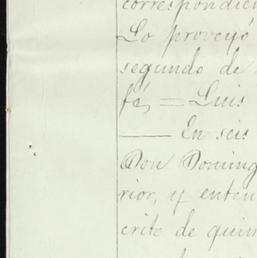 correspondien
Lo proveyó
segundo de
fé, = Luis
— En seis
Don Doming
rior, y enten
crito de quin